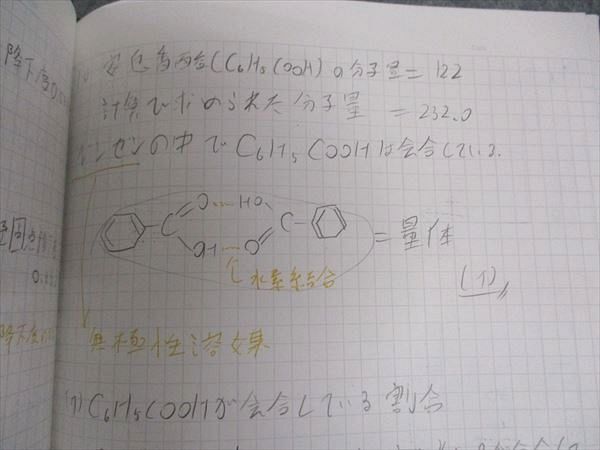 降下度0.
安息香酸(C6H5COOH)の分子量=122
計算で求められた分子量 =232.0
ベンゼンの中でC6H5COOHは会合している.
C O HO C
OH O
=量体
水素結合
(1)
凝固点降
0.
降下度の
無極性溶媒
(7) C6H5COOHが会合している割合